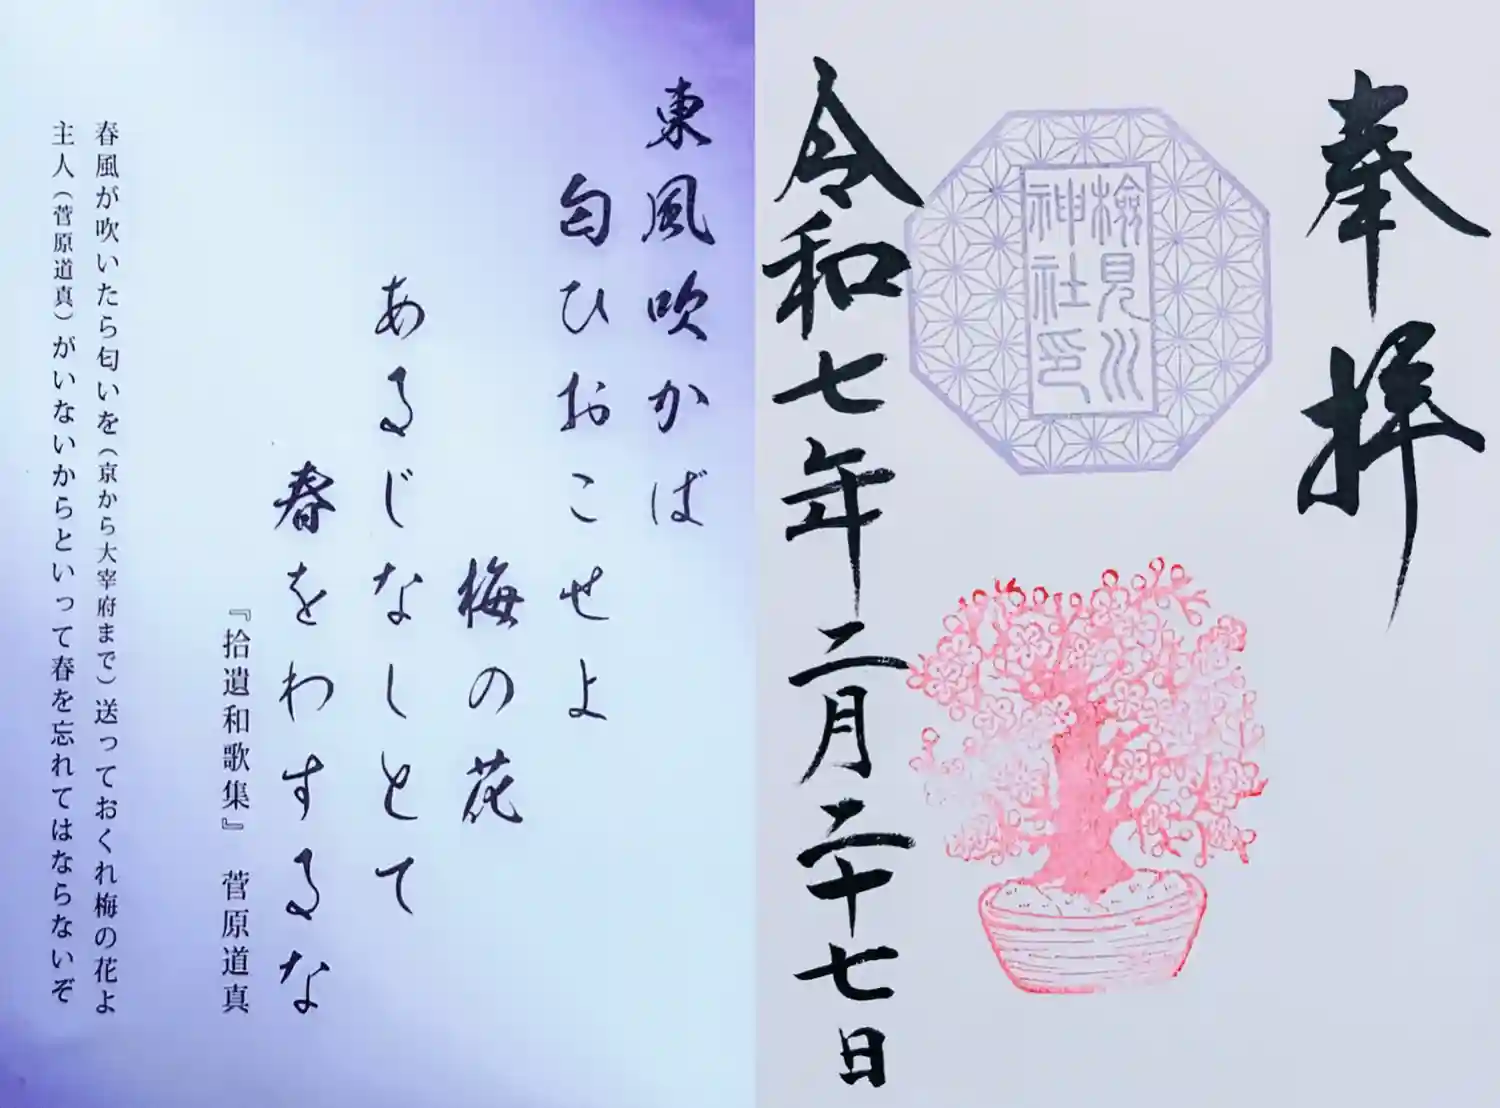 奉拝
檢見川
神社印
令和七年二月二十七日
東風吹かば
匂ひおこせよ
梅の花
あるじなしとて
春をわするな
『拾遺和歌集』 菅原道真
春風が吹いたら匂いを(京から大宰府まで)送っておくれ梅の花よ
主人(菅原道真)がいないからといって春を忘れてはならないぞ